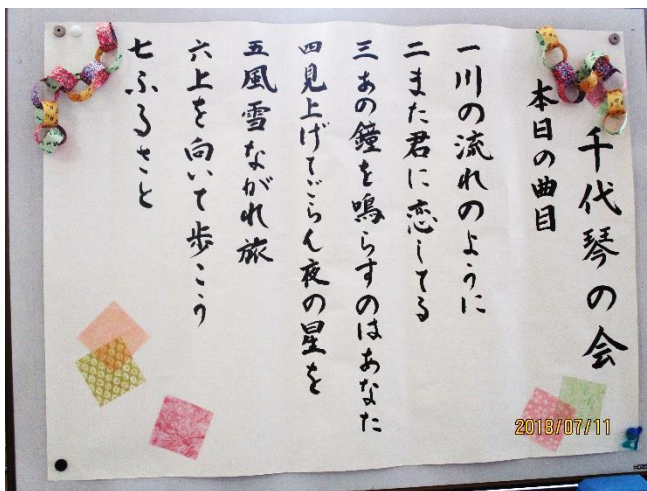 千代琴の会
本日の曲目
一川の流れのように
二また君に恋してる
三あの鐘を鳴らすのはあなた
四見上げてごらん夜の星を
五風雪ながれ旅
六上を向いて歩こう
七ふるさと
2018/07/11